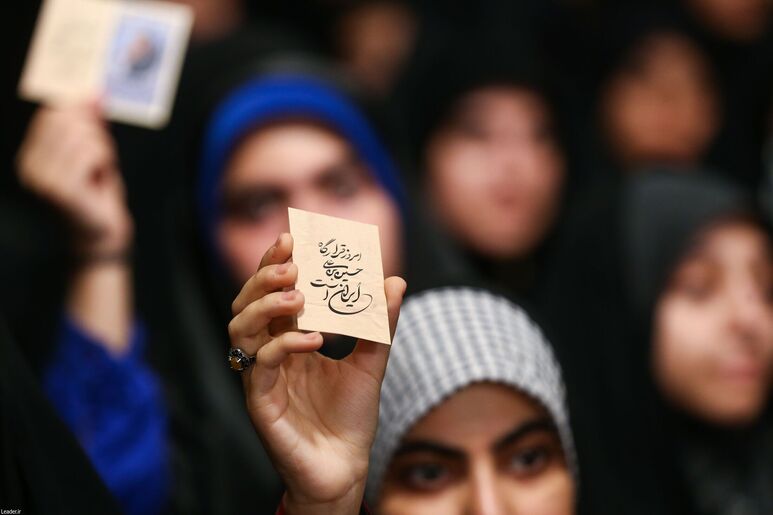 امروز قرارگاه
حسین بن علی
ایران است
Leader.ir